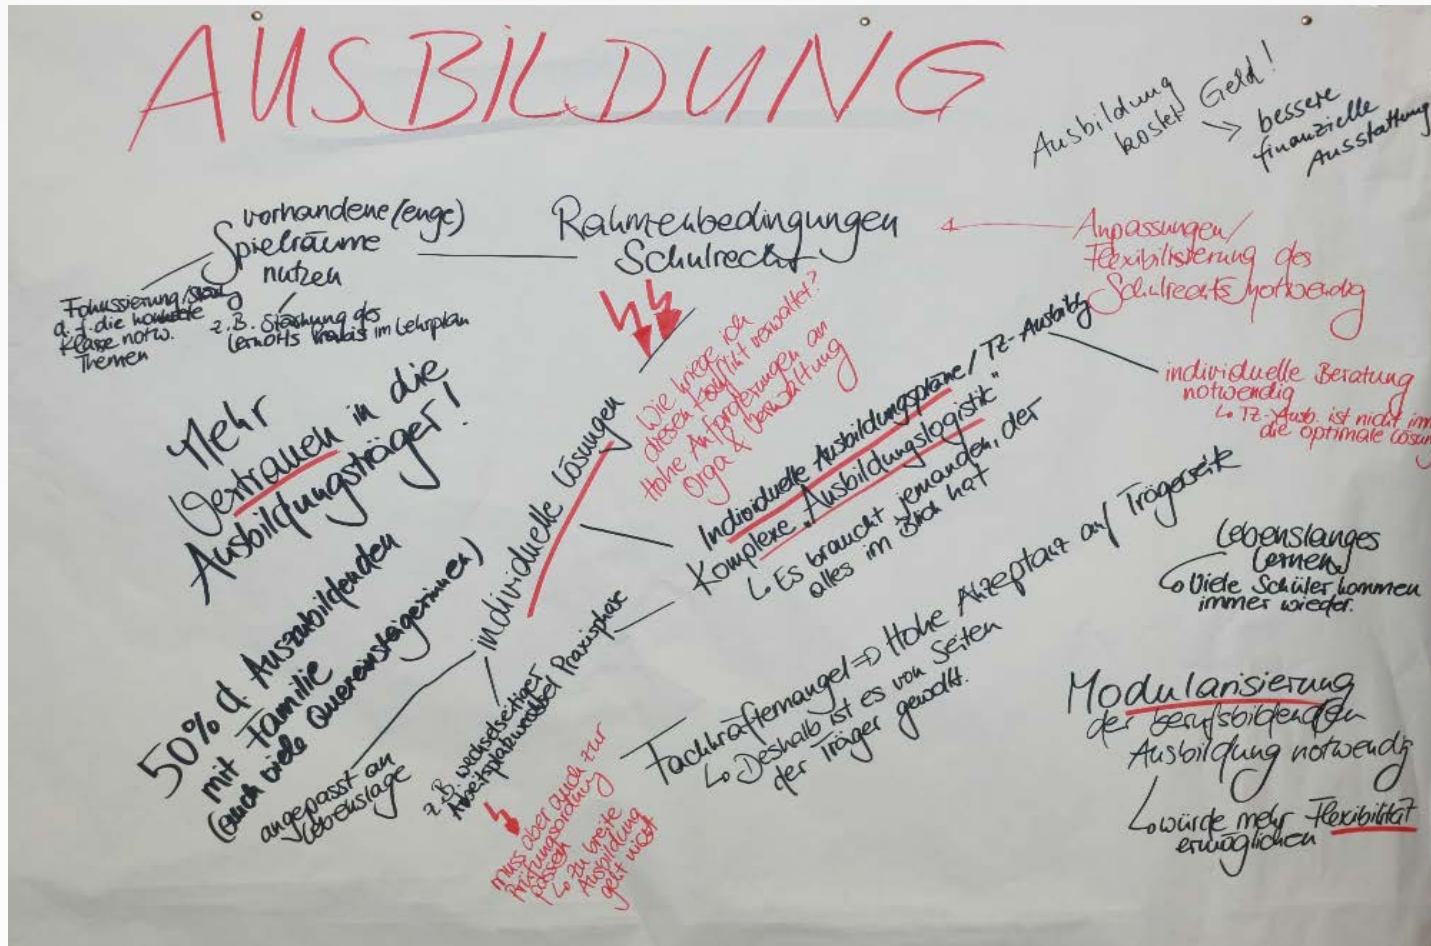 AUSBILDUNG
Ausbildung
kostet Geld!
bessere
finanzielle
Ausstattung
vorhandene (enge)
Spielräume
nutzen
Rahmenbedingungen
Schulrecht
Anpassungen/
Flexibilisierung des
Schulrechts notwendig
Fokussierung
a. f. die
Klasse notw.
Themen
z.B. Stärkung des
Lernorts Praxis im Lehrplan
Mehr
Vertrauen in die
Ausbildungsträger!
individuelle Lösungen
Wie kriege ich
diesen Konflikt verwaltet?
Hohe Anforderungen an
Orga & Verwaltung
Individuelle Ausbildungspläne / TZ-Ausbildg
Komplexe „Ausbildungslogistik"
↳ Es braucht jemanden, der
alles im Blick hat
individuelle Beratung
notwendig
↳ TZ-Ausb. ist nicht imm
die optimale Lösung
50% d. Auszubildenden
mit Familie
(auch viele Quereinsteigerinnen)
angepasst an
Lebenslage
z.B. wechselseitiger
Arbeitsplatz Praxisphase
muss aber auch zur
Prüfungsordnung
passen
↳ zu breite
Ausbildung
geht nicht
Fachkräftemangel => Hohe Akzeptanz auf Trägerseite
↳ Deshalb ist es von Seiten
der Träger gewollt.
Lebenslanges
Lernen
↳ Viele Schüler kommen
immer wieder.
Modularisierung
der berufsbildenden
Ausbildung notwendig
↳ würde mehr Flexibilität
ermöglichen